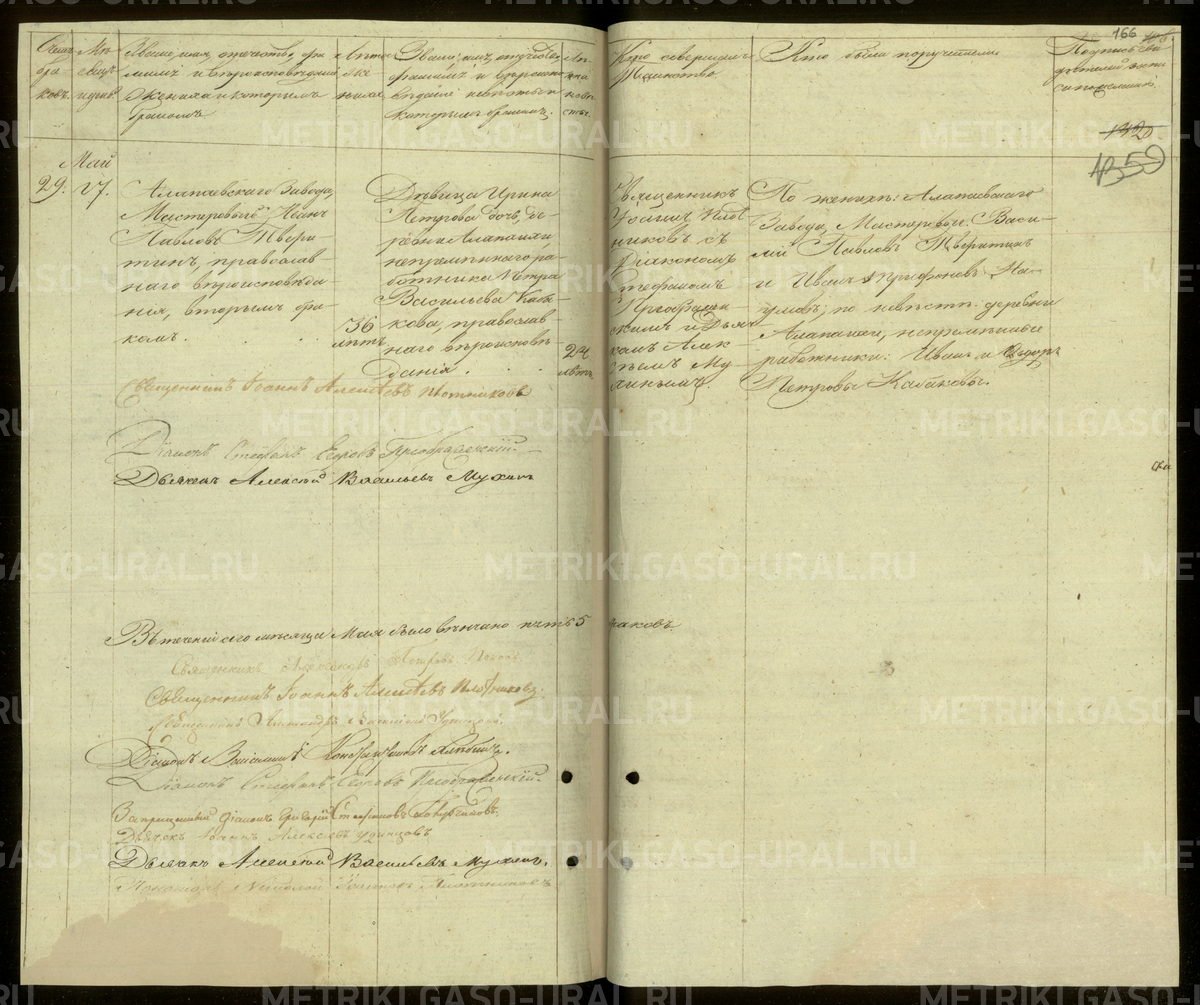 166
Счетъ бра ковъ.
Мѣ сяцъ и день.
Званіе, имя, отчество, фа
милія и вѣроисповѣданіе
жениха и которымъ
бракомъ.
Лѣта же ниха.
Званіе, имя, отчество,
фамилія и вѣроиспо
вѣданіе невѣсты и
которымъ бракомъ.
Лѣ та не вѣ сты.
Кто совершалъ
Таинство.
Кто были поручители
Подпись сви
дѣтелей запи
си по желанію.
1320
1350
Май
29.
27.
Алапаевскаго Завода,
Мастеровый Иванъ
Павловъ Твери
тинъ, православ
наго вѣроисповѣда
нія, вторымъ бра
комъ.
36
лѣтъ
Дѣвица Ирина
Петрова дочь, де
ревни Алапаихи,
непремѣннаго ра
ботника Петра
Васильева Каба
кова, православ
наго вѣроисповѣ
данія.
24
лѣтъ
Священникъ
Іоаннъ Плот
никовъ съ
Діакономъ
Стефаномъ
Преображен
скимъ и Дьяч
комъ Алек
сѣемъ Му
хинымъ
По женихѣ: Алапаевскаго
Завода, Мастеровые: Васи-
лій Павловъ Тверитинъ
и Иванъ Трифоновъ На-
умовъ; по невѣстѣ: деревни
Алапаихи, непремѣнные
работники: Иванъ и Ѳедоръ
Петровы Кабаковы.
Священникъ Іоаннъ Алексѣевъ Плотниковъ
Діаконъ Стефанъ Егоровъ Преображенскій
Дьячекъ Алексѣй Васильевъ Мухинъ
Въ теченіи сего мѣсяца Мая было вѣнчано пять 5 браковъ
Священникъ Александръ Петровъ Поповъ
Священникъ Іоаннъ Алексѣевъ Плотниковъ.
Священникъ Александръ
Діаконъ Василій Константиновъ
Діаконъ Стефанъ Егоровъ Преображенскій.
Запрещенный діаконъ Григорій Стефановъ
Дьячекъ Іоаннъ Алексѣевъ Удинцовъ
Дьячекъ Алексѣй Васильевъ Мухинъ.
Пономарь Николай Іоанновъ Плотниковъ
METRIKI.GASO-URAL.RU